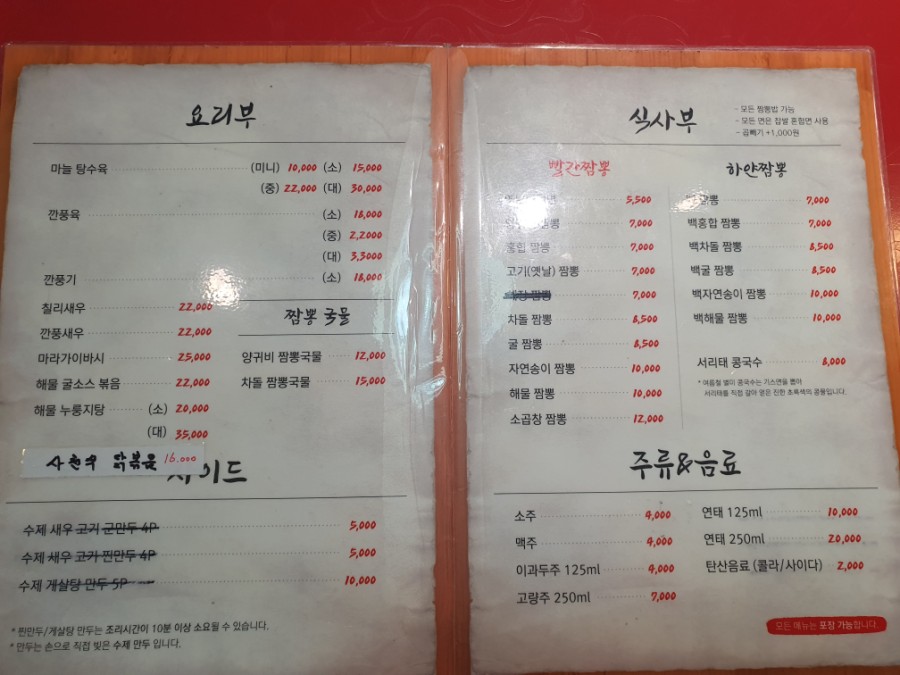 요리부
마늘 탕수육 (미니) 10,000 (소) 15,000
(중) 22,000 (대) 30,000
깐풍육 (소) 18,000
(중) 2,2000
(대) 3,3000
깐풍기 (소) 18,000
칠리새우 22,000
깐풍새우 22,000
마라가이바시 25,000
해물 굴소스 볶음 22,000
해물 누룽지탕 (소) 20,000
(대) 35,000
짬뽕 국물
양귀비 짬뽕국물 12,000
차돌 짬뽕국물 15,000
닭볶음 16.000
사이드
수제 새우 고기 군만두 4P 5,000
수제 새우 고기 찐만두 4P 5,000
수제 게살탕 만두 5P 10,000
* 찐만두/게살탕 만두는 조리시간이 10분 이상 소요될 수 있습니다.
* 만두는 손으로 직접 빚은 수제 만두 입니다.
식사부
- 모든 짬뽕밥 가능
- 모든 면은 찹쌀 혼합면 사용
- 곱빼기 +1,000원
빨간짬뽕
5,500
짬뽕 7,000
홍합 짬뽕 7,000
고기(옛날) 짬뽕 7,000
짬뽕 7,000
차돌 짬뽕 8,500
굴 짬뽕 8,500
자연송이 짬뽕 10,000
해물 짬뽕 10,000
소곱창 짬뽕 12,000
하얀짬뽕
짬뽕 7,000
백홍합 짬뽕 7,000
백차돌 짬뽕 8,500
백굴 짬뽕 8,500
백자연송이 짬뽕 10,000
백해물 짬뽕 10,000
서리태 콩국수 8,000
* 여름철 별미 콩국수는 기스면을 뽑아
서리태를 직접 갈아 얻은 진한 초록색의 콩물입니다.
주류&음료
소주 4,000
맥주 4,000
이과두주 125ml 4,000
고량주 250ml 7,000
연태 125ml 10,000
연태 250ml 20,000
탄산음료 (콜라/사이다) 2,000
모든 메뉴는 포장 가능합니다.